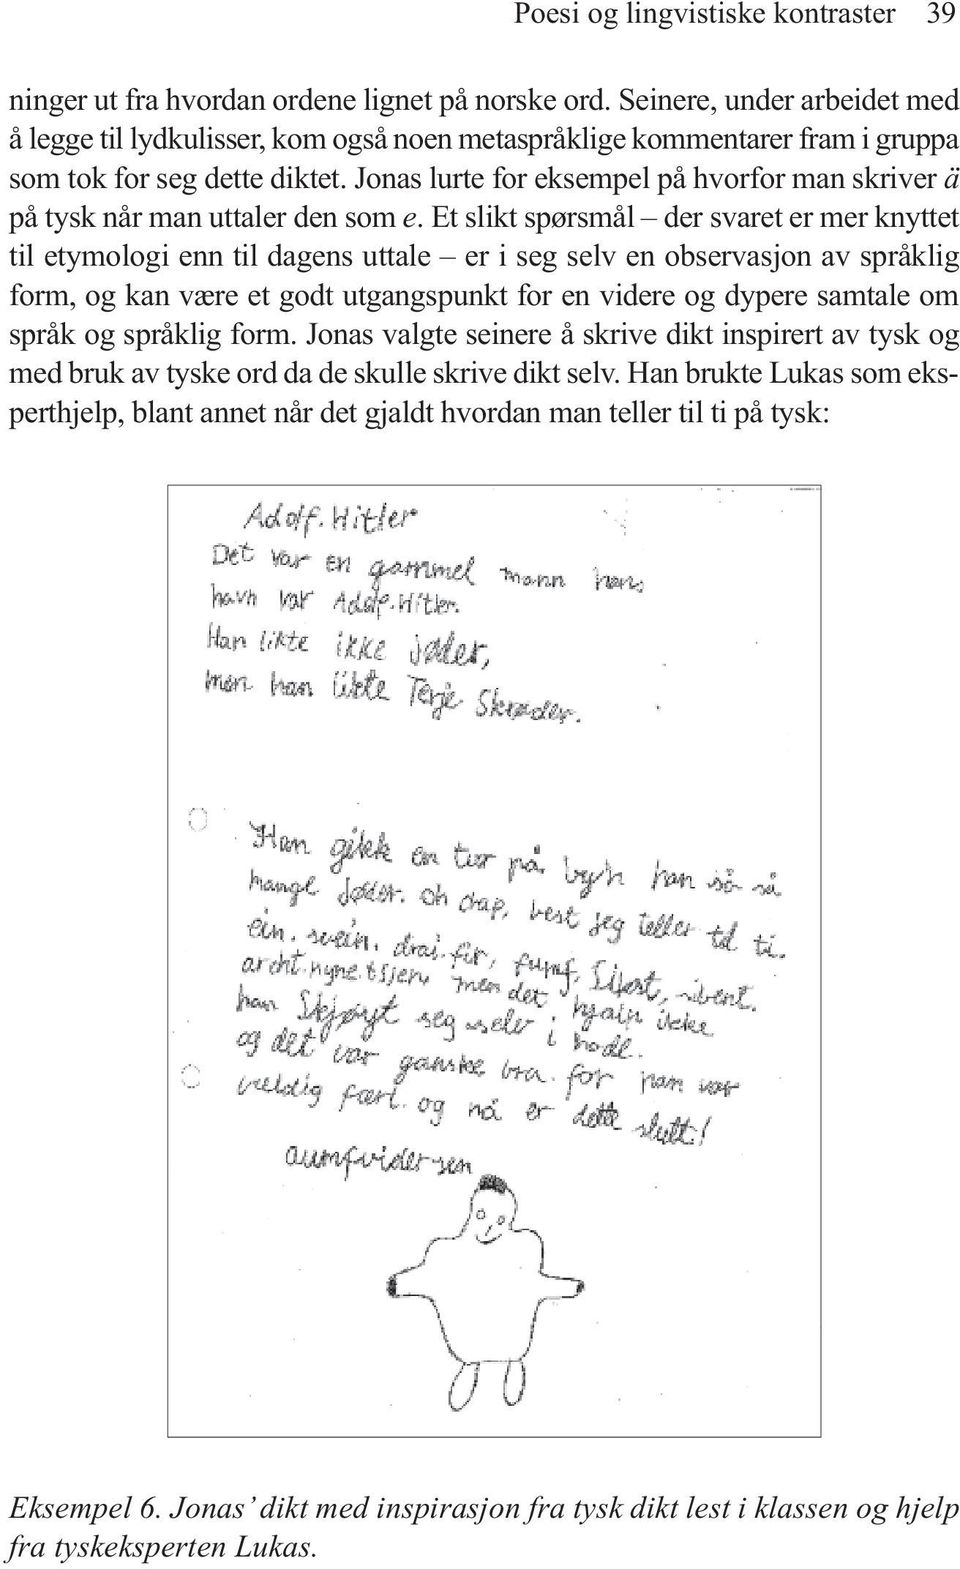 Poesi og lingvistiske kontraster 39
ninger ut fra hvordan ordene lignet på norske ord. Seinere, under arbeidet med
å legge til lydkulisser, kom også noen metaspråklige kommentarer fram i gruppa
som tok for seg dette diktet. Jonas lurte for eksempel på hvorfor man skriver ä
på tysk når man uttaler den som e. Et slikt spørsmål – der svaret er mer knyttet
til etymologi enn til dagens uttale – er i seg selv en observasjon av språklig
form, og kan være et godt utgangspunkt for en videre og dypere samtale om
språk og språklig form. Jonas valgte seinere å skrive dikt inspirert av tysk og
med bruk av tyske ord da de skulle skrive dikt selv. Han brukte Lukas som eks-
perthjelp, blant annet når det gjaldt hvordan man teller til ti på tysk:
Adolf. Hitler
Det var en gammel mann hans
havn var Adolf. Hitler.
Han likte ikke jøder,
men han likte Terje Skrøder.
Han gikk en tur på byn han så så
mange Jøder. oh drap, best jeg teller til ti.
ein, svein, drai. fir, fumf, sibent.
archt. nyne. tsjen, men det hjalp ikke
han Skjøyt seg selv i hode.
og det var ganske bra. for han var
veldig fært. og nå er dette slutt!
aumfvidersen
Eksempel 6. Jonas’ dikt med inspirasjon fra tysk dikt lest i klassen og hjelp
fra tyskeksperten Lukas.